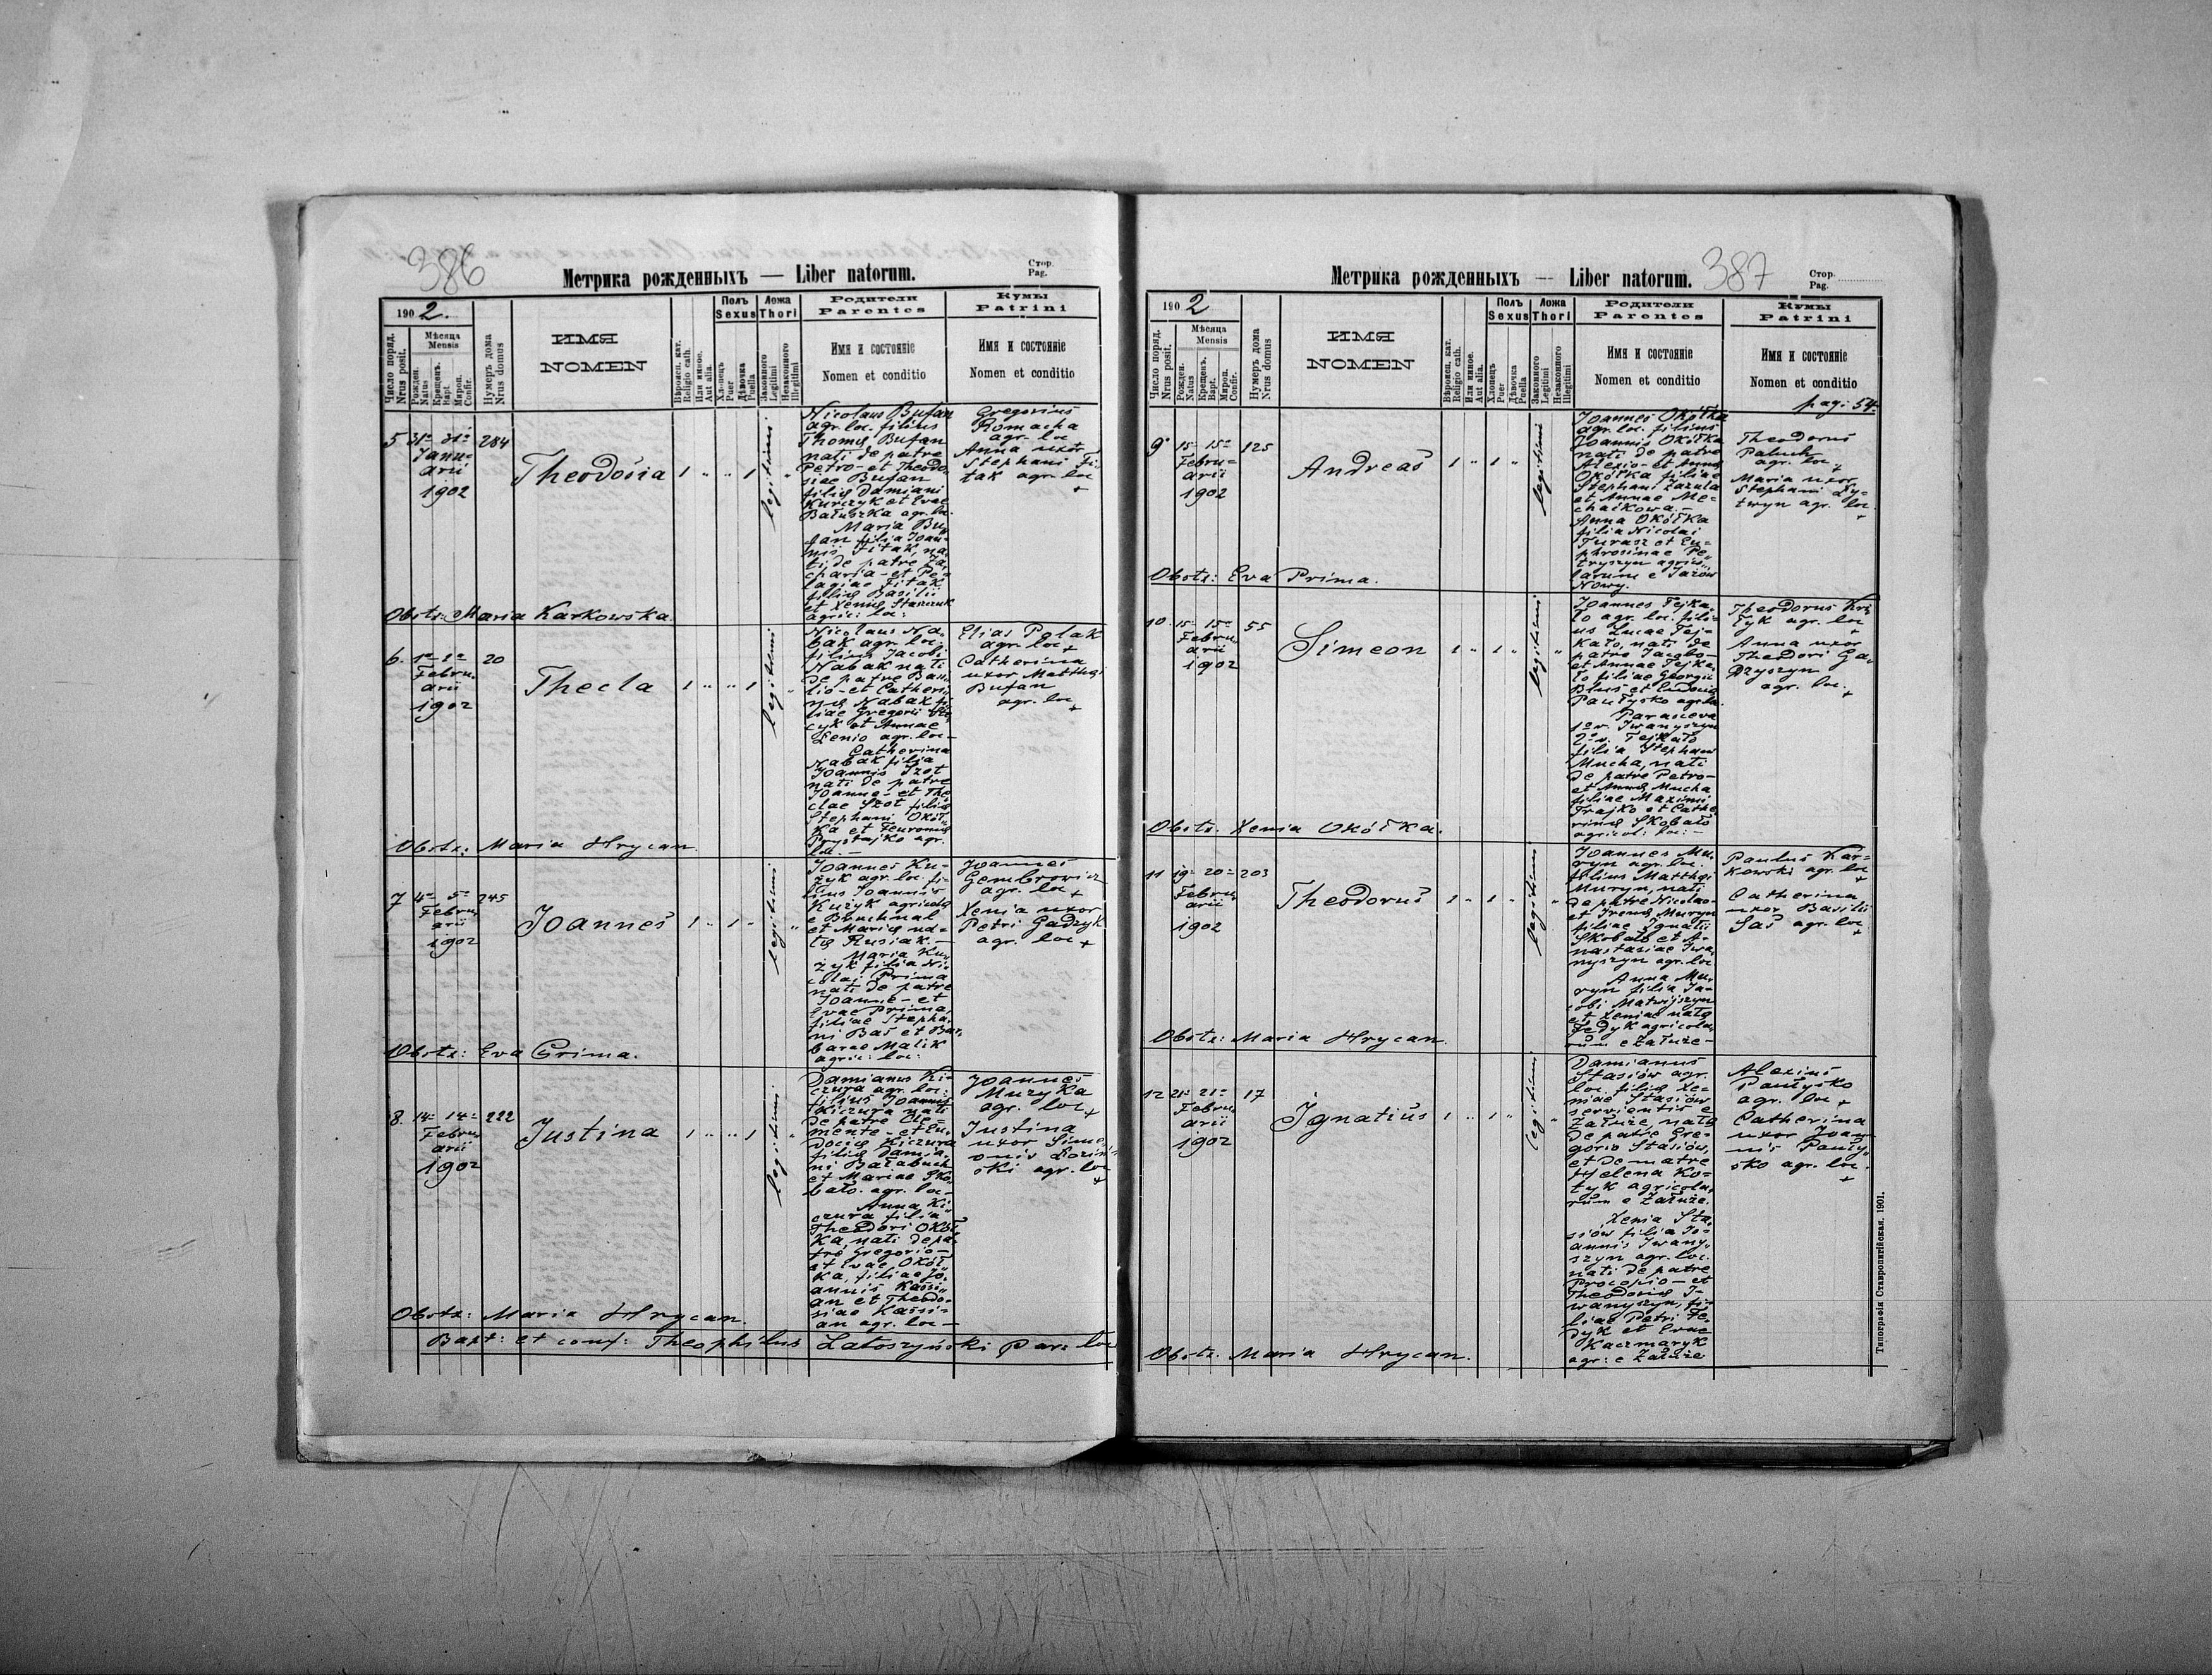 386
Метрика рожденныхъ — Liber natorum.
Стор.
Pag.
1902.
Число поряд.
Nrus posit.
Мѣсяца
Mensis
Рожден.
Natus
Крещенъ.
Bapt.
Мѵроп.
Confir.
Нумеръ дома
Nrus domus
ИМЯ
NOMEN
Вѣроисп. кат.
Religio cath.
Или иное.
Aut alia.
Полъ
Sexus
Хлопецъ
Puer
Дѣвочка
Puella
Ложа
Thori
Законного
Legitimi
Незаконного
Illegitimi
Родители
Parentes
Имя и состоянiе
Nomen et conditio
Кумы
Patrini
Имя и состоянiе
Nomen et conditio
5 31a 31a 284
Janu=
arii
1902
Theodosia
1 " " 1 legitimi "
Nicolaus Bufan
agr. loc. filius
Thomæ Bufan
nati de patre
Petro - et Theodo,
siae Bufan
filiæ Damiani
Kurczyk et Evae
Bałuszka agr. loc.
Maria Bu,
fan filia Joan-
nis Fitak, na,
ti de patre Za
charia - et Pe-
lagiae Fitak
filiæ Basilii
et Xeniæ Staszczuk
agric: loc:
Gregorius
Romacha
agr. loc
Anna uxor
Stephani Fi-
tak agr. loc
+
Obstr: Maria Karkowska.
6. 1a 2a 20
Febru,
arii
1902
Thecla
1 " " 1 legitimi "
Nicolaus Na-
bak agr. loc.
filius Jacobi
Nabak nati
de patre Basi-
lio - et Catheri-
næ Nabak fi-
liae Gregorii
cyk et Annae
Zenio agr. loc -
Catherina
Nabak filia
Joannis Szot
nati de patre
Joanne - et The
clae Szot filiæ
Stephani Okół,
ka et Feuroniæ
Prystajko agr.
loc. -
Elias Polak
agr. loc +
Catherina
uxor Matthæi
Bufan
agr. loc +
Obstr: Maria Hrycan.
7 4a 5a 245
Febru,
arii
1902
Joannes
1 " 1 " legitimi "
Joannes Ku-
żyk agr. loc. fi-
lius Joannis
Kużyk agricolæ
e Bruchnal
et Mariæ na-
tæ Rusiak. -
Maria Ku,
żyk filia Ni-
colai Prima
nati de patre
Joanne - et
Evae Prima,
filiae Stepha,
ni Baś et Bar,
barae Malik
agric: loc:
Joannes
Gembrowicz
agr. loc +
Xenia uxor
Petri Gadzyk
agr. loc +
Obstr: Eva Prima.
8. 14a 14a 222
Febru,
arii
1902
Justina
1 " " 1 legitimi "
Damianus Ki-
czura agr. loc.
filius Joannis
Kiczura nati
de patre Cle-
mente - et Eu,
dociæ Kiczura
filiæ Damia,
ni Bałabuch
et Mariae Sko,
bało. agr. loc -
Anna Ki,
czura filia
Theodori Okół,
ka, nati de pa-
tre Gregorio -
et Evae Okół,
ka, filiae Jo,
annis Kassi,
an et Theodo-
siae Kassi-
an agr. loc -
Joannes
Muzyka
agr. loc +
Justina
uxor Sime
onis
ski agr. loc
+
Obstr: Maria Hrycan.
Bapt: et conf: Theophilus Łatoszyński Par: loc
Метрика рожденныхъ — Liber natorum.
387
Стор.
Pag.
1902
Число поряд.
Nrus posit.
Мѣсяца
Mensis
Рожден.
Natus
Крещенъ.
Bapt.
Мѵроп.
Confir.
Нумеръ дома
Nrus domus
ИМЯ
NOMEN
Вѣроисп. кат.
Religio cath.
Или иное.
Aut alia.
Полъ
Sexus
Хлопецъ
Puer
Дѣвочка
Puella
Ложа
Thori
Законного
Legitimi
Незаконного
Illegitimi
Родители
Parentes
Имя и состоянiе
Nomen et conditio
Кумы
Patrini
Имя и состоянiе
Nomen et conditio
pag: 54.
9 15a 15a 125
Febru=
arii
1902
Andreas
1 " 1 " legitimi
Joannes Okółka
agr. loc. filius
Joannis Okółka
nati de patre
Alexio - et Annæ
Okółka filiae
Stephani Zazula
et Annae Me-
chaikowa. -
Anna Okółka
filia Nicolai
Turasz et Eu-
phrosinae Pe,
tryszyn agrico,
larum e Jazów
Nowy.
Theodorus
Paluch
agr. loc. +
Maria uxor
Stephani Ły-
twyn agr. loc.
+
Obstr: Eva Prima.
10. 15a 15a 55
Febru,
arii
1902
Simeon
1 " 1 " legitimi "
Joannes Fejka,
ło agr. loc. fili-
us Lucae Fej-
kało, nati de
patre Jacobo -
et Annae Fejka,
ło filiae Georgii
Bluś et Eudociæ
Pańtysko agr. loc.
Parasceva
1o v. Iwanyszyn
2o v. Fejkało
filia Stephani
Mucha, nati
de patre Petro -
et Annæ Mucha
filiae Maximi
Frajko et Cathe
rinæ Skobało
agricol: loc: -
Theodorus
tyk agr. loc +
Anna uxor
Theodori Ga,
dzyszyn
agr. loc. +
Obstr. Xenia Okółka.
11 19a 20a 203
Febru,
arii
1902
Theodorus
1 " 1 " legitimi "
Joannes Mu,
ryn agr. loc.
filius Matthæi
Muryn, nati
de patre Nicolao -
et Irenæ Muryn
filiae Ignatii
Skobało et A-
nastasiae Iwa,
nyszyn agr. loc
Anna Mu,
ryn filia Ja-
cobi Matwijszyn
et Xeniae natæ
Fedyk agricola,
rum e Załuże -
Paulus Kar-
kowski agr. loc
+
Catherina
uxor Basilii
Saś agr. loc
+
Obstr: Maria Hrycan.
12 21a 21a 17
Febru,
arii
1902
Ignatius
1 " 1 " legitimi "
Damianus
Stasiów agr.
loc. filius Xe-
niae Stasiów
servientis e
Załuże, natæ
de patre Gre-
gorio Stasiów,
et de matre
Helena Ko-
tyk agricola,
rum e Załuże.
Xenia Sta,
siów filia Jo-
annis Iwany,
szyn agr. loc.
nati de patre
Procopio - et
Theodosiæ I-
wanyszyn, fi-
liae Petri Fe,
dyk et Evae
Kaczmaryk
agr: e Załuże
Alexius
Pańtysko
agr. loc +
Catherina
uxor Joan-
nis Panty,
sko agr. loc.
+
Obstr. Maria Hrycan.
Типографiя Ставропигiйская. 1901.